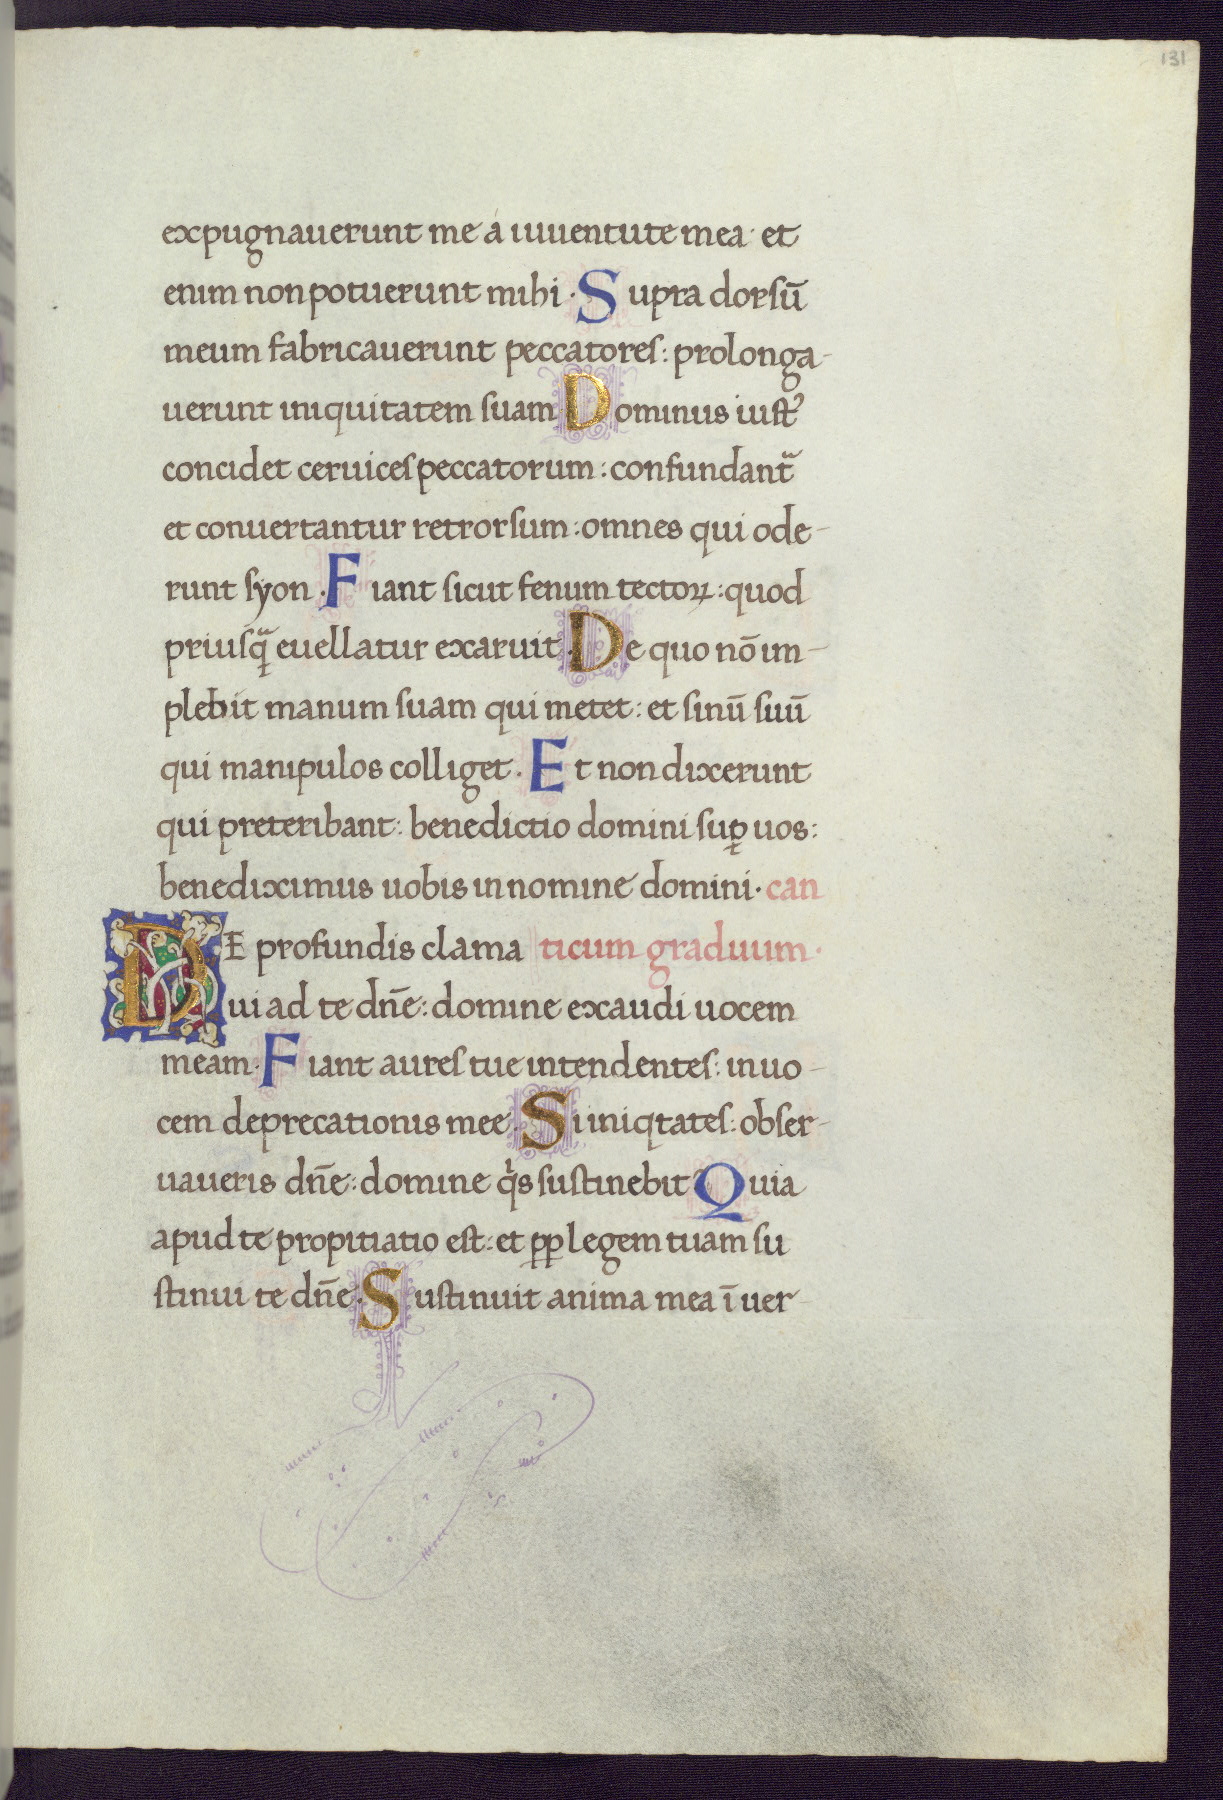 131
expugnauerunt me a iuuentute mea · et
enim non potuerunt mihi · Supra dorsū
meum fabricauerunt peccatores : prolonga-
uerunt iniquitatem suam Dominus iustꝰ
concidet ceruices peccatorum : confundant᷑
et conuertantur retrorsum : omnes qui ode-
runt syon · Fiant sicut fenum tectoꝝ : quod
priusꝗ̃ euellatur exaruit · De quo nō im-
plebit manum suam qui metet : et sinū suū
qui manipulos colliget · Et non dixerunt
qui preteribant : benedictio domini suꝑ uos :
benediximus uobis in nomine domini · can
DE profundis clama ticum graduum ·
ui ad te dn̄e : domine exaudi uocem
meam · Fiant aures tue intendentes : in uo-
cem deprecationis mee · Si iniqtates : obser-
uaueris dn̄e : domine qͥs sustinebit Quia
apud te propitiatio est : et ꝓp legem tuam su
stinui te dn̄e · Sustinuit anima mea ī uer-